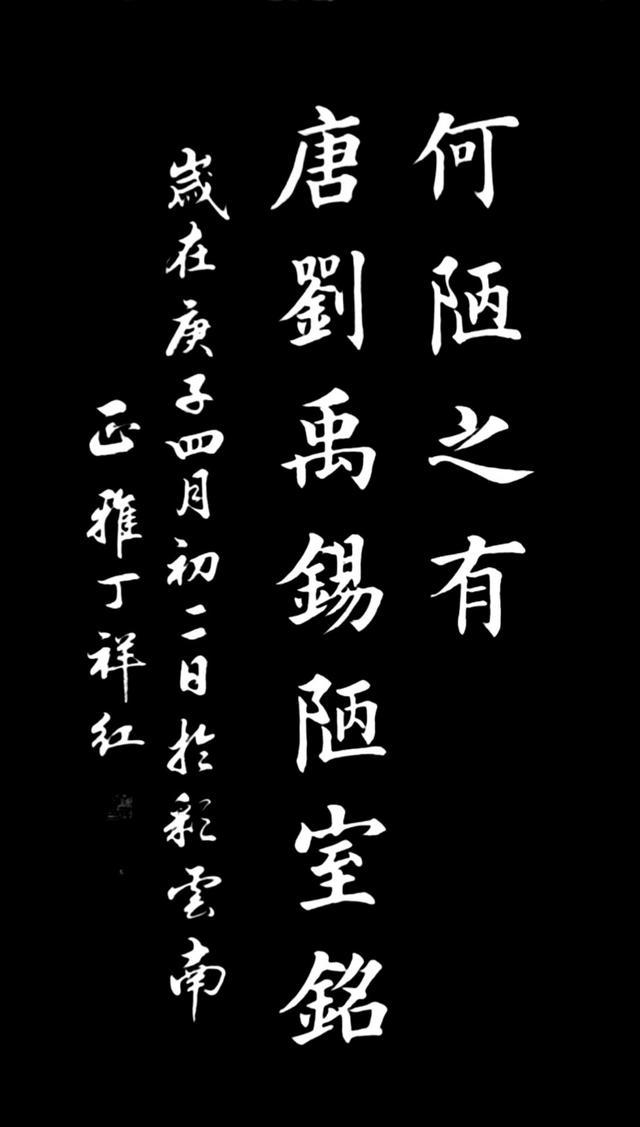 何陋之有
唐劉禹錫陋室銘
歲在庚子四月初二日於彩雲南
正雅丁祥紅